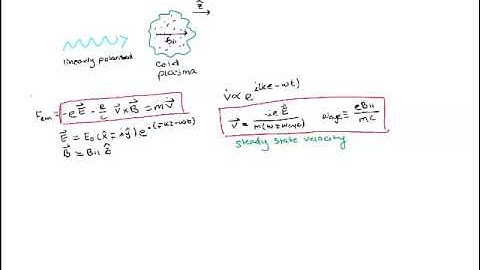 ẑ
B||
linearly polarized
cold
plasma
F_em = -eE⃗ - e/c v⃗×B⃗ = m v̇⃗
E⃗ = E₀(x̂ ∓ iŷ) e^i(kz-ωt)
B⃗ = B|| ẑ
v ∝ e^i(kz-ωt)
v⃗ = -ieE⃗ / m(ω ± ω_cyc) ω_cyc ≡ eB|| / mc
steady state velocity